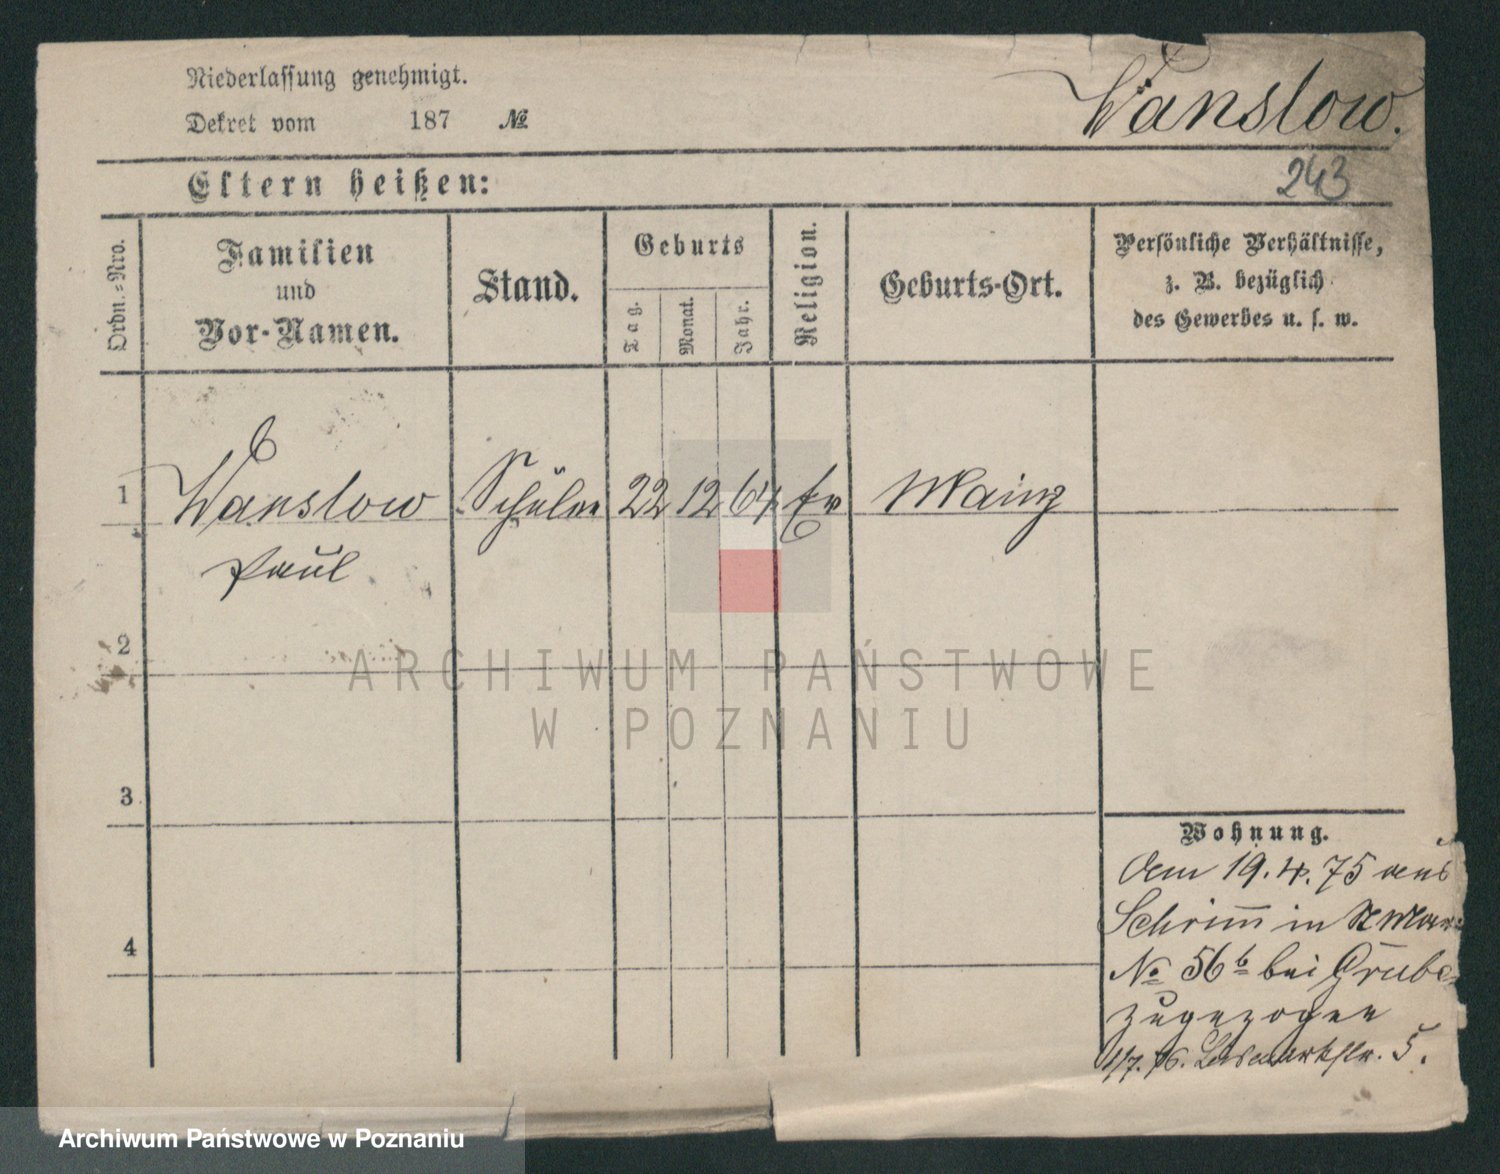 Niederlassung genehmigt.
Dekret vom 187 №
Wanslow.
243
Eltern heißen:
Ordn.-Nro.
Familien
und
Vor-Namen.
Stand.
Geburts
Tag.
Monat.
Jahr.
Religion.
Geburts-Ort.
Persönliche Verhältnisse,
z. B. bezüglich
des Gewerbes u. s. w.
1 Wanslow Schüler 22 12 64 Ev Mainz
Paul
2
3
4
Wohnung.
Dem 19.4.75 aus
Schrimm in St Mar
No 56b bei Grube
zugezogen
1/7. 76. 5.
ARCHIWUM PAŃSTWOWE
W POZNANIU
Archiwum Państwowe w Poznaniu